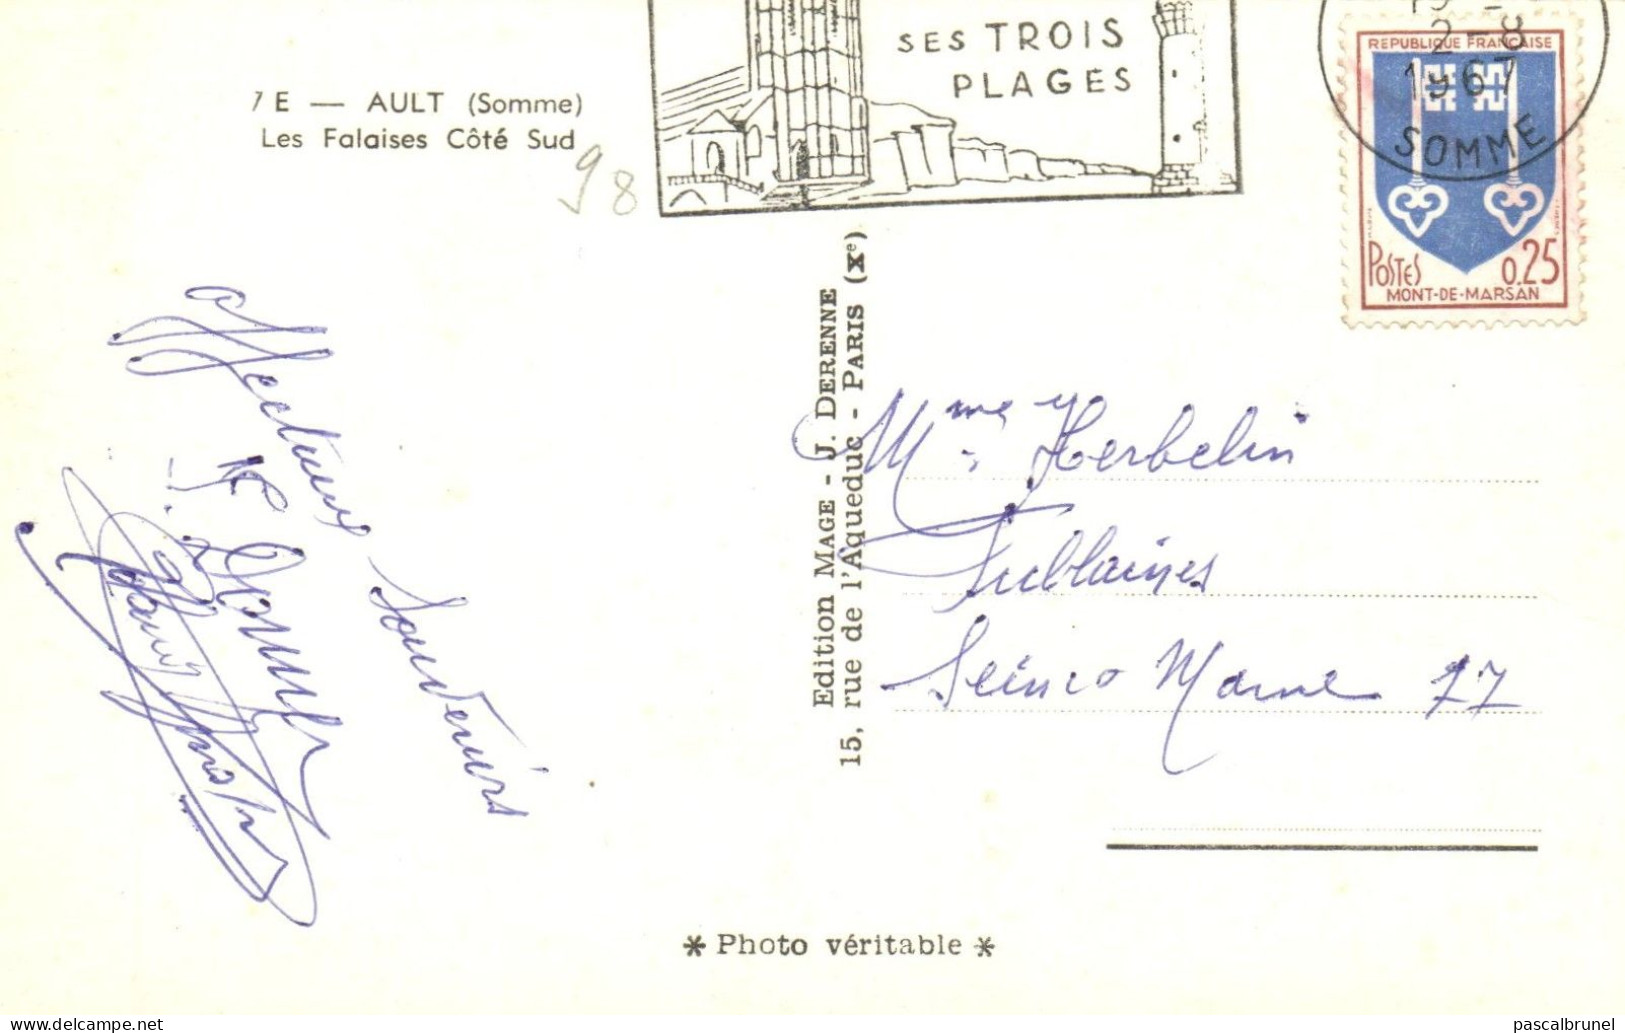 7 E — AULT (Somme)
Les Falaises Côté Sud
98
SES TROIS
PLAGES
2-8
1967
SOMME
REPUBLIQUE FRANÇAISE
POSTES
0.25
MONT-DE-MARSAN
affectueux souvenirs
Edition MAGE - J. DERENNE
15, rue de l'Aqueduc - PARIS (Xe)
Mme Herbelin
Fublaines
Seine et Marne 77
* Photo véritable *
delcampe.net
pascalbrunel